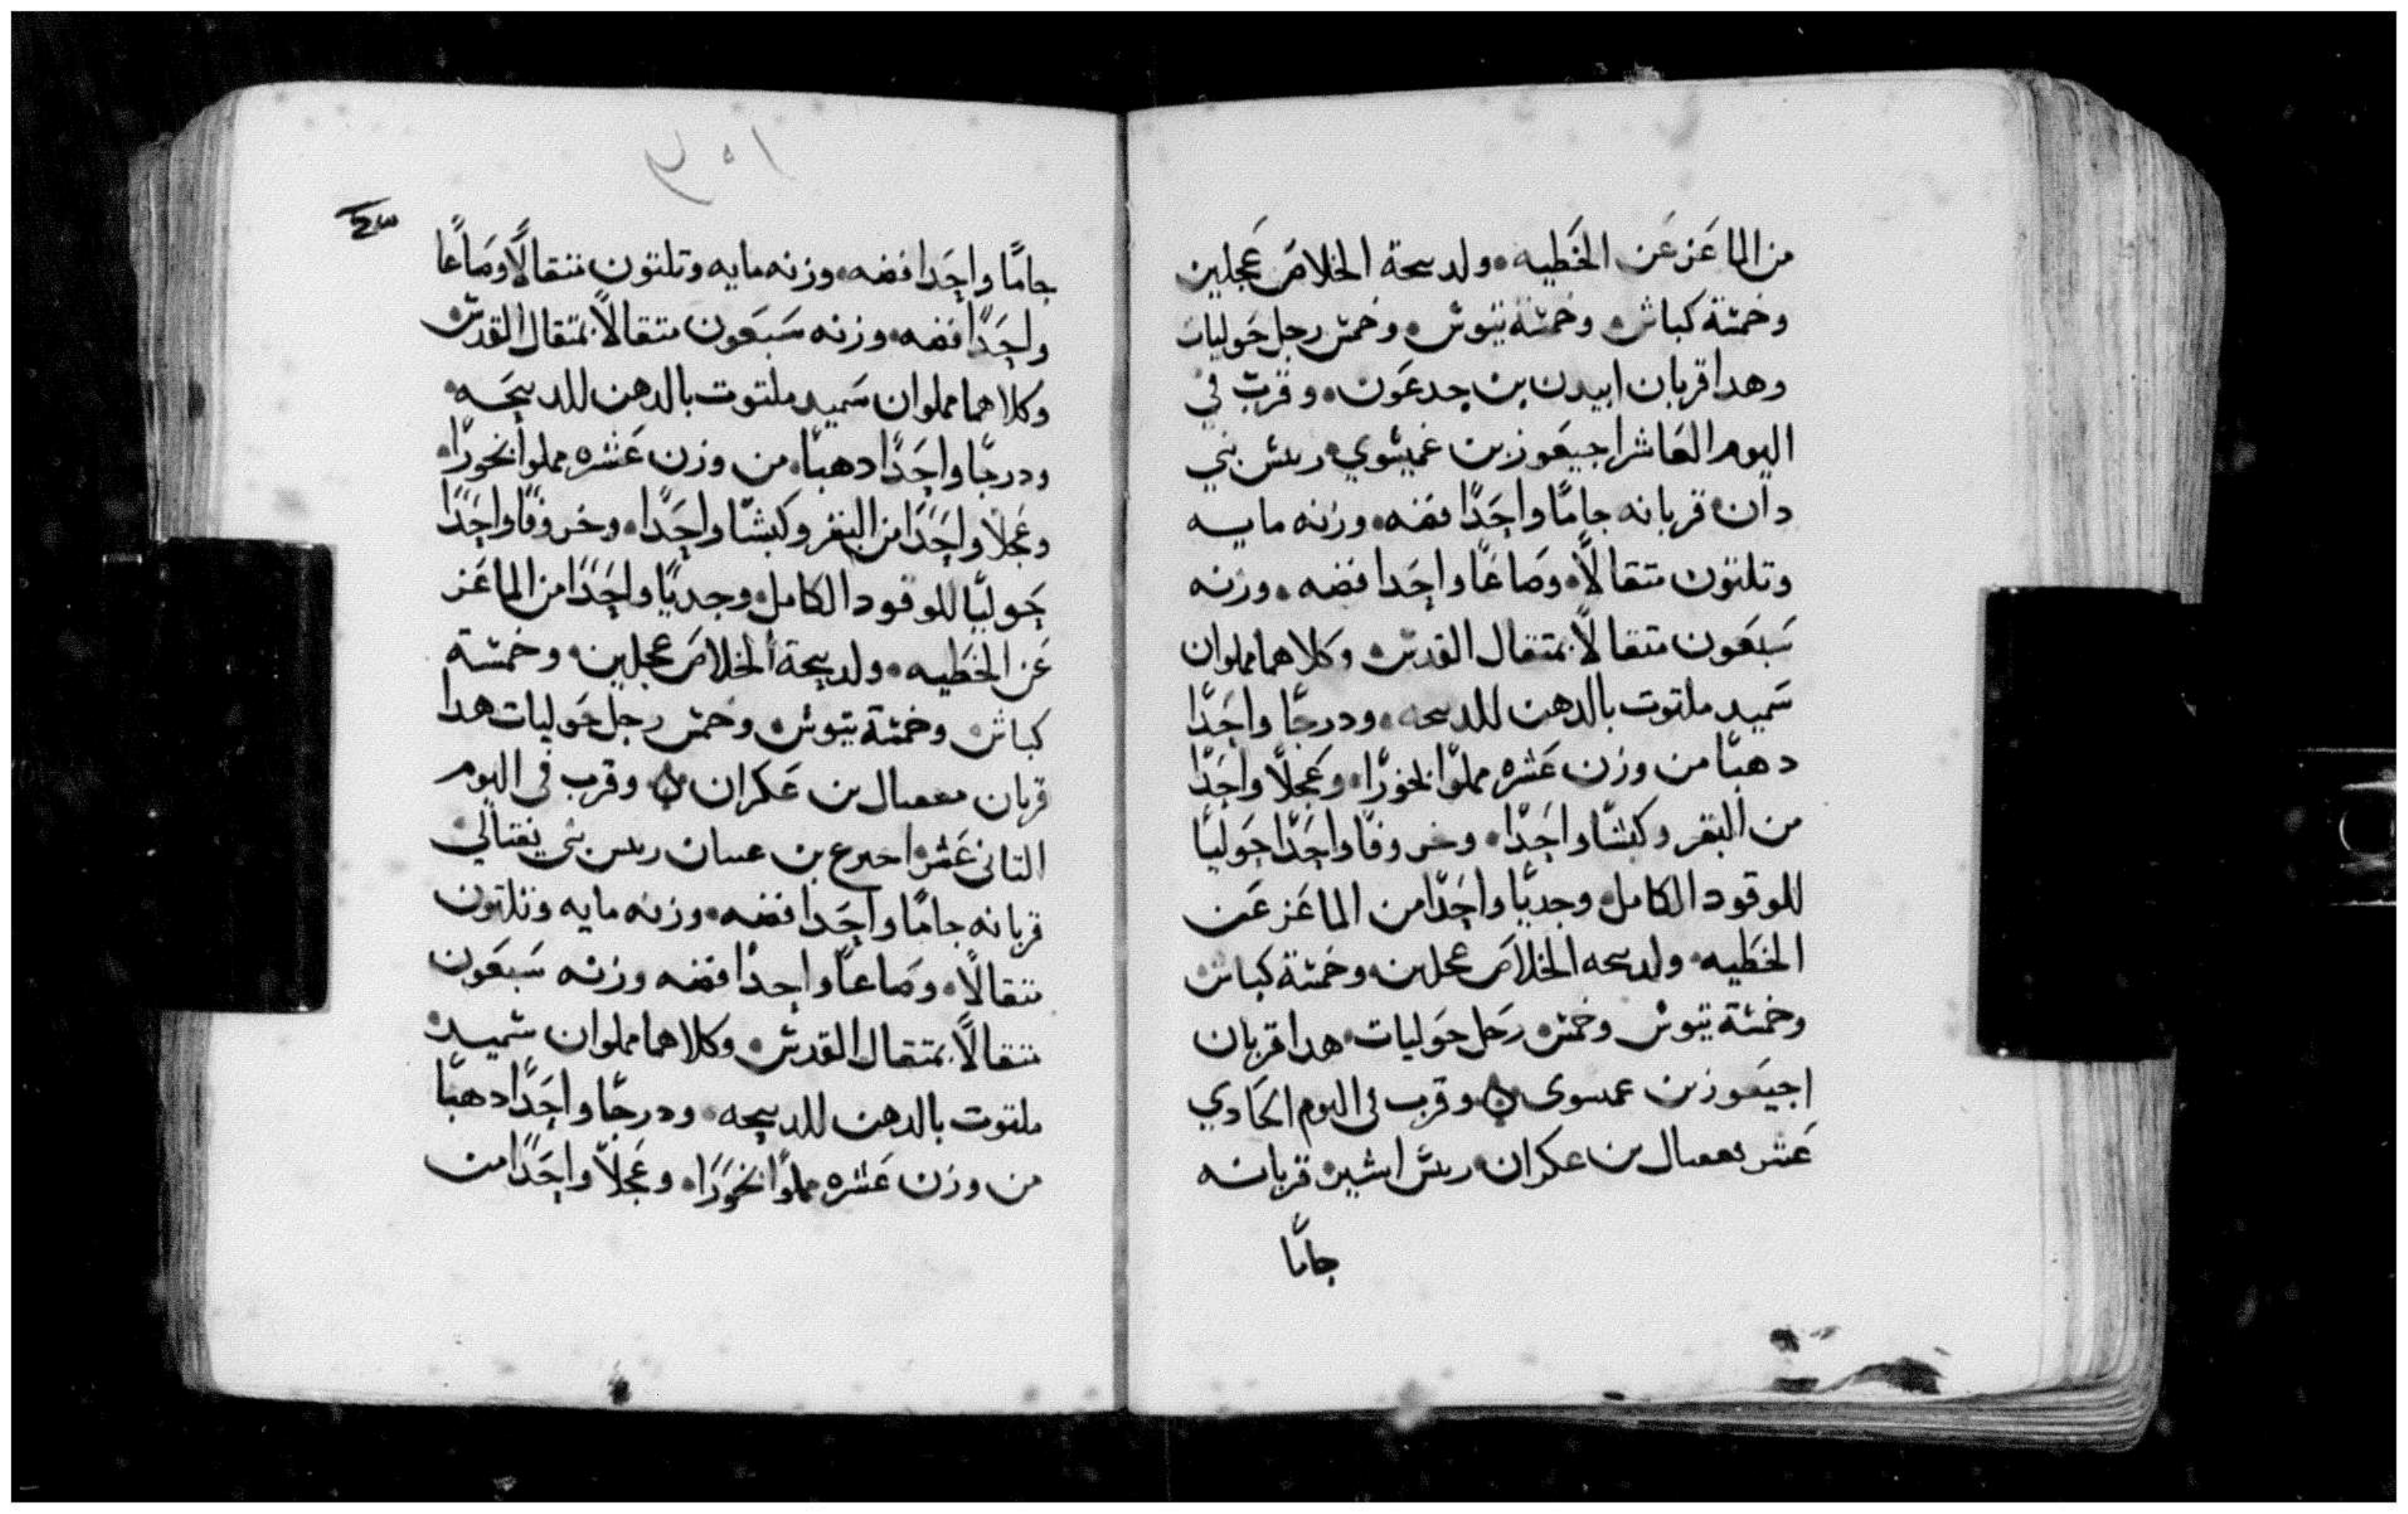 من الماعَز عَن الخَطيه ولدبيحة الخلاصَ عَجلين
وخمسَة كباش وخمسَة تيوس وخمس رجل حَوليات
وهدا قربان ابيدن بن جدعَون وقرّب في
اليوم العَاشر اجيعَوزبن عَميشوي ريس بني
دان قربانه جامًا واحِدًا فضه وزنه مايه
وتلتون متقالاً وصَاعًا واحِدا فضه وزنه
سَبعَون متقالاً بمتقال القدس وكلاهما مملوان
سَميد ملتوت بالدهن للدبيحه ودرجًا واحِدًا
دهبًا من وزن عَشره مملوًا بخورًا وعَجلاً واحِدًا
من البقر وكبشًا واحِدًا وخروفًا واحِدًا حَوليًا
للوقود الكامل وجديًا واحِدًا من الماعَز عَن
الخطيه ولدبيحه الخلاصَ عجلين وخمسَة كباش
وخمسَة تيوس وخمس رَجل حَوليات هدا قربان
اجيعَوزبن عميسوى وقرب فى اليوم الحَادي
عَشر فععيال بن عكران ريس اشير قربانه
جامًا
٣٥١
جامًا واحِدا فضه وزنه مايه وتلتون متقالاً وصَاعًا
واحِدًا فضه وزنه سَبعَون متقالاً بمتقال القدس
وكلاهما مملوان سَميد ملتوت بالدهن للدبيحَه
ودرجًا واحِدًا دهبًا من وزن عَشره مملوا بخورًا
وعَجلاً واحِدًا من البقر وكبشًا واحِدًا وخروفًا واحِدًا
حَوليًا للوقود الكامل وجديًا واحِدًا من الماعَز
عَن الخطيه ولدبيحة الخلاصَ عجلين وخمسَة
كباش وخمسَة تيوس وخمس رجل حَوليات هدا
قربان فععيال بن عَكران وقرب فى اليوم
التانى عَشر احيرع بن عينان ريس بني نفتالي
قربانه جامًا واحِدا فضه وزنه مايه وتلتون
متقالاً وصَاعًا واحدًا فضه وزنه سَبعَون
متقالاً بمتقال القدس وكلاهما مملوان سَميد
ملتوت بالدهن للدبيحه ودرجًا واحِدًا دهبًا
من وزن عَشره مملوًا بخورًا وعَجلاً واحِدًا من